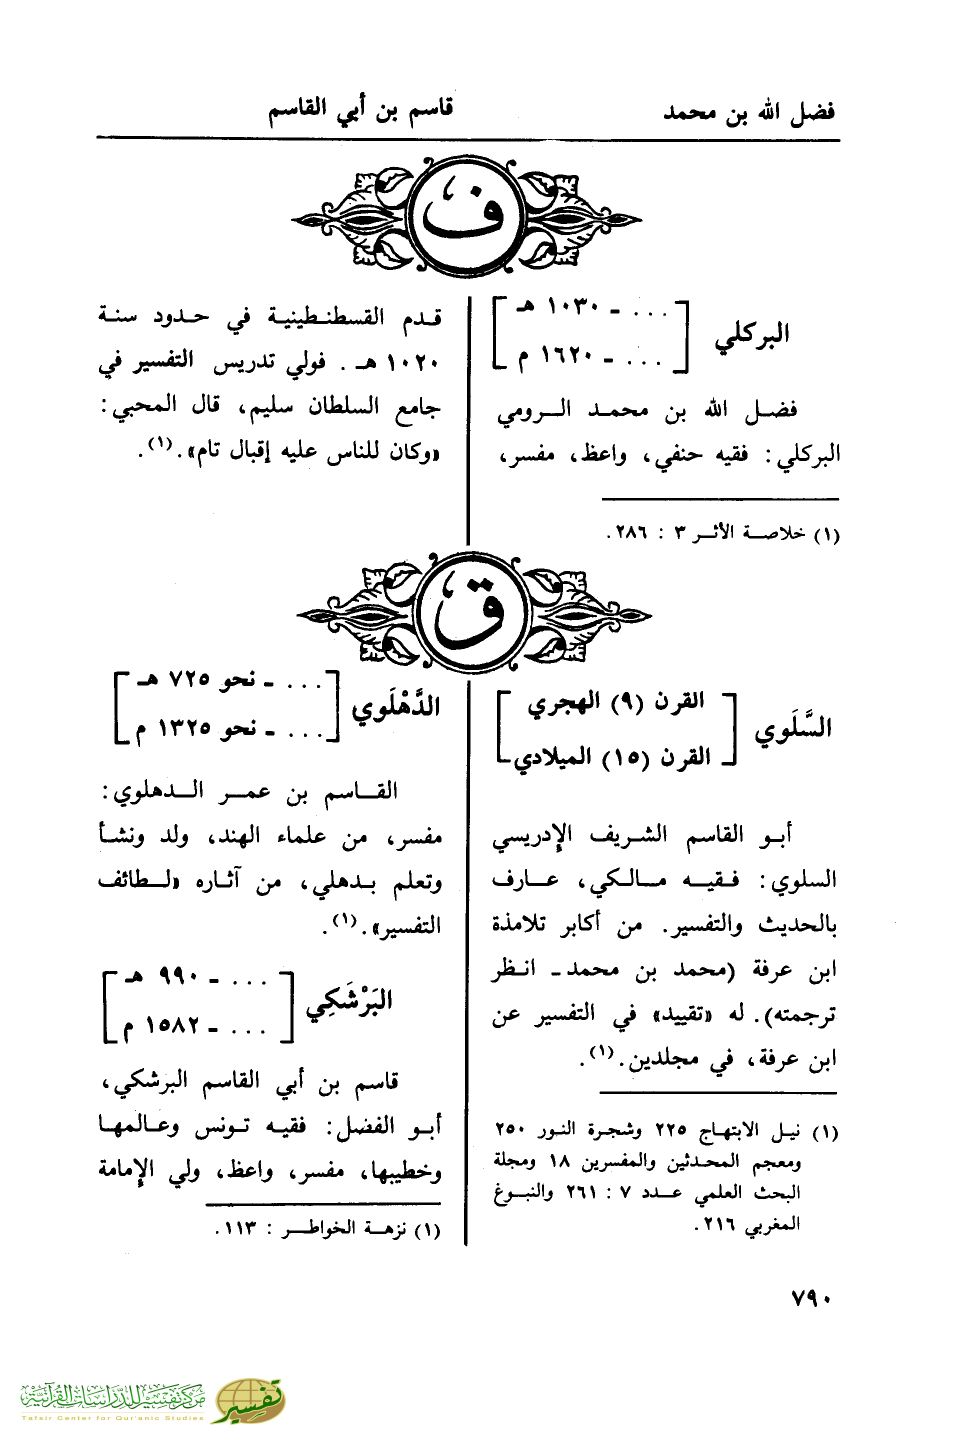 فضل الله بن محمد
قاسم بن أبي القاسم
ف
البركلي
... ـ ١٠٣٠ هـ
... ـ ١٦٢٠ م
فضل الله بن محمد الرومي
البركلي: فقيه حنفي، واعظ، مفسر،
قدم القسطنطينية في حدود سنة
١٠٢٠ هـ. فولي تدريس التفسير في
جامع السلطان سليم، قال المحبي:
«وكان للناس عليه إقبال تام».(١).
(١) خلاصة الأثر ٣ : ٢٨٦.
ق
السَّلَوي
القرن (٩) الهجري
القرن (١٥) الميلادي
أبو القاسم الشريف الإدريسي
السلوي: فقيه مالكي، عارف
بالحديث والتفسير. من أكابر تلامذة
ابن عرفة (محمد بن محمد ـ انظر
ترجمته). له «تقييد» في التفسير عن
ابن عرفة، في مجلدين.(١).
(١) نيل الابتهاج ٢٢٥ وشجرة النور ٢٥٠
ومعجم المحدثين والمفسرين ١٨ ومجلة
البحث العلمي عدد ٧ : ٢٦١ والنبوغ
المغربي ٢١٦.
الدَّهْلَوي
... ـ نحو ٧٢٥ هـ
... ـ نحو ١٣٢٥ م
القاسم بن عمر الدهلوي:
مفسر، من علماء الهند، ولد ونشأ
وتعلم بدهلي، من آثاره «لطائف
التفسير».(١).
البَرْشَكِي
... ـ ٩٩٠ هـ
... ـ ١٥٨٢ م
قاسم بن أبي القاسم البرشكي،
أبو الفضل: فقيه تونس وعالمها
وخطيبها، مفسر، واعظ، ولي الإمامة
(١) نزهة الخواطر : ١١٣.
٧٩٠
مركز تفسير للدراسات القرآنية
Tafsir Center for Qur'anic Studies
تفسير